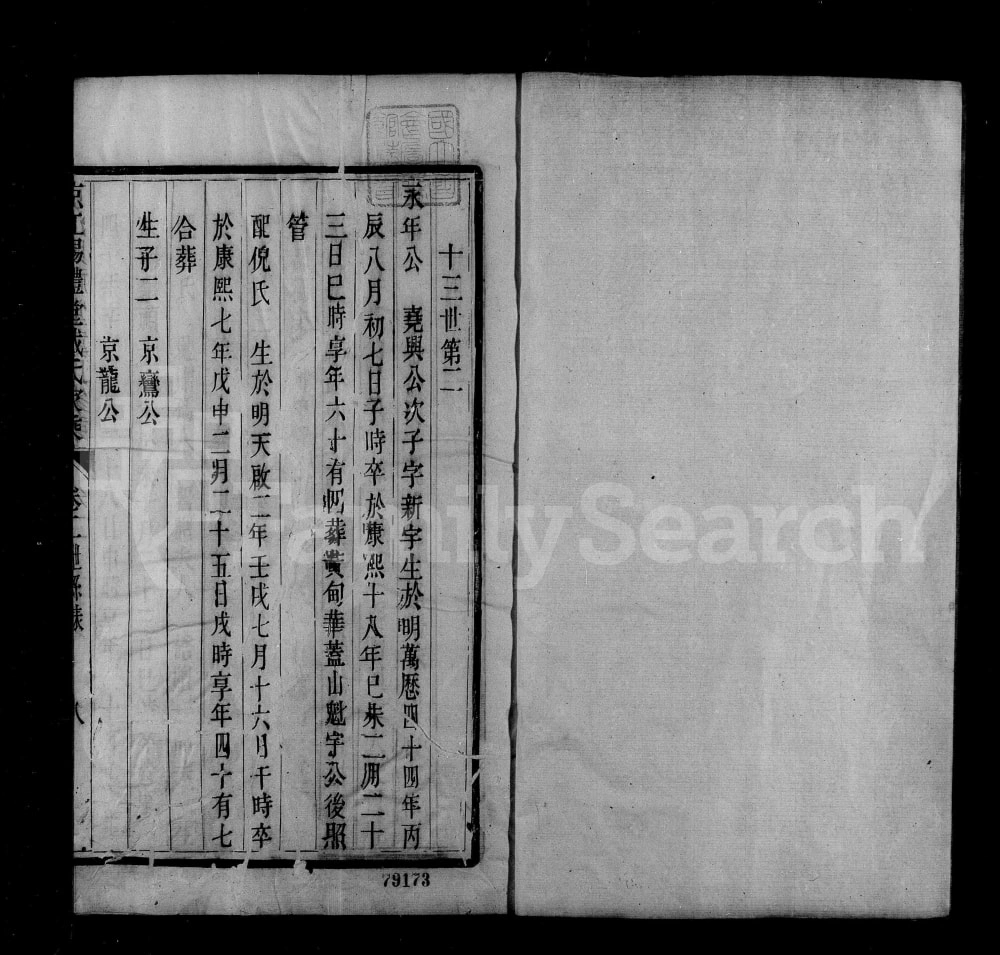 十三世第二
永年公　堯與公次子字新宇生於明萬歷四十四年丙
辰八月初七日子時卒於康熙十八年巳未二月二十
三日巳時享年六十有四葬黃甸華蓋山魁宇公後照
管
配倪氏　生於明天啟二年壬戌七月十六日午時卒
於康熙七年戊申二月二十五日戌時享年四十有七
合葬
生子二　京鸞公
京龍公
京江 禮堂 氏家乘 卷 世系 八
79173
FamilySearch